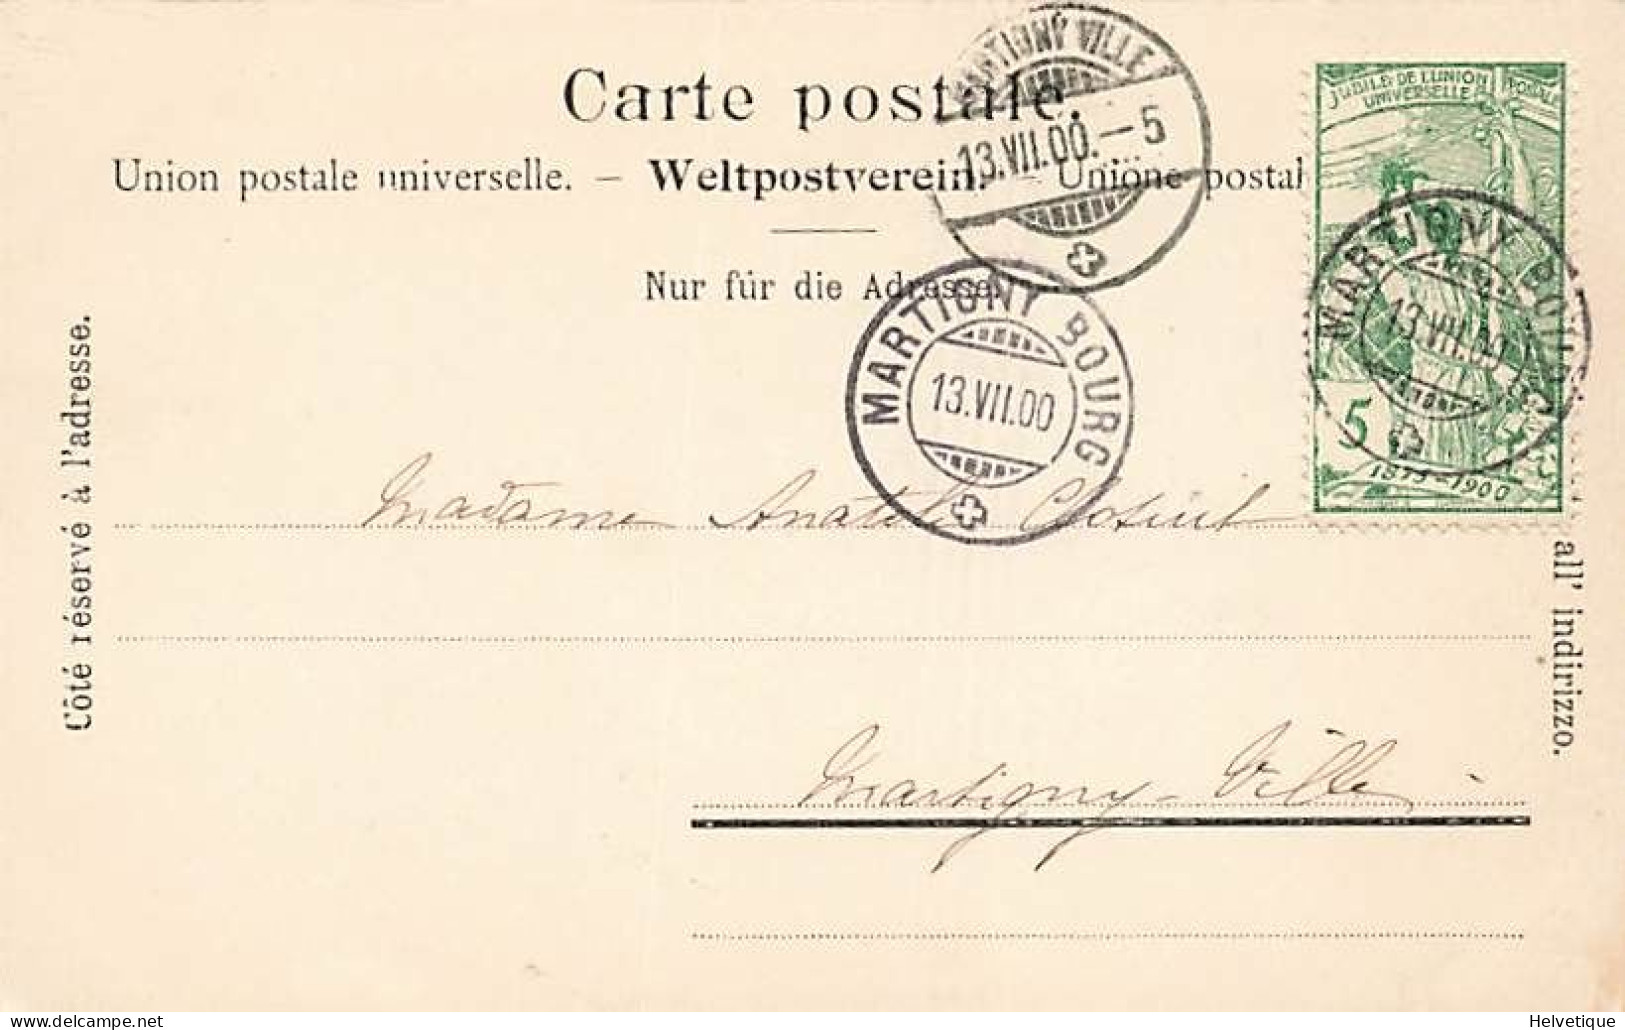 Carte postale.
Union postale universelle. – Weltpostverein. – Unione postal
Nur für die Adresse.
Côté réservé à l'adresse.
all' indirizzo.
MARTIGNY VILLE
13.VII.00.–5
MARTIGNY BOURG
13.VII.00
JUBILÉ DE L'UNION POSTALE
UNIVERSELLE
MARTIGNY BOURG
13.VII.00
5
1875–1900
Madame Anatole
Martigny-Ville
delcampe.net
Helvetique